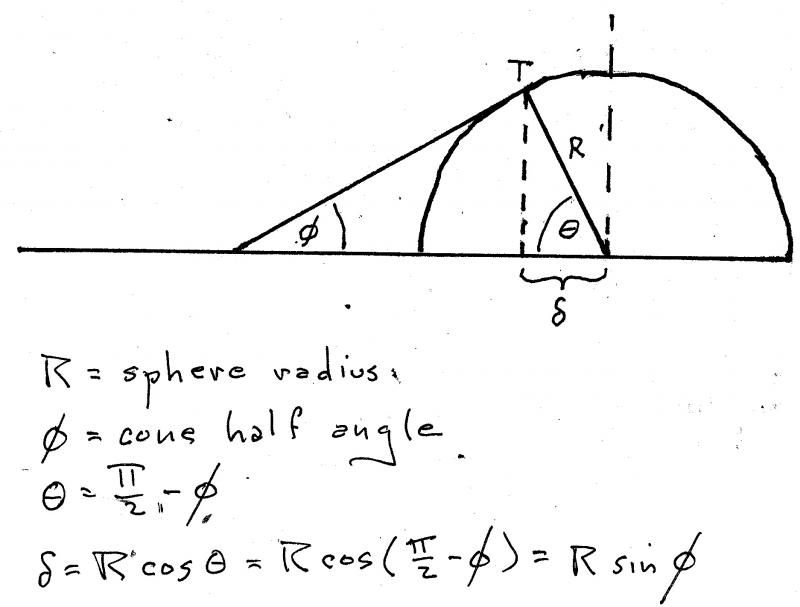 T
R
ϕ
θ
δ
R = sphere radius.
ϕ = cone half angle.
θ = π/2 - ϕ
δ = R cos θ = R cos(π/2 - ϕ) = R sin ϕ